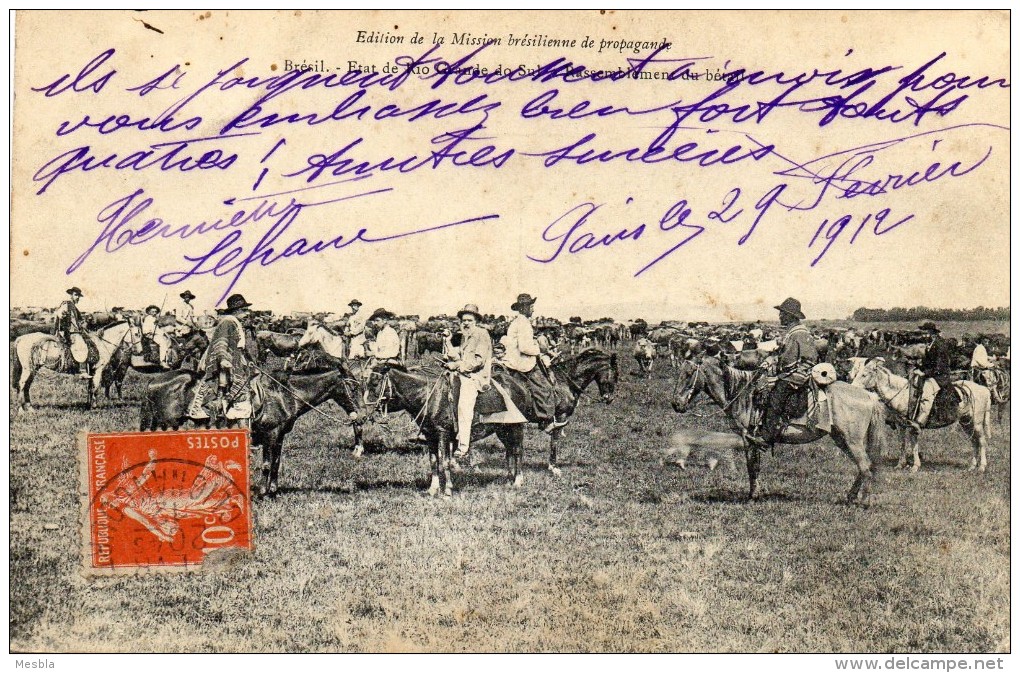 Edition de la Mission brésilienne de propagande
Brésil. - Etat de Rio Grande do Sul. - Rassemblement du bétail
Ils se joignent à moi pour
vous embrasser bien fort touts
quatres! Amitiés sincères
Henriette
Lefranc
Paris le 29 Février
1912
POSTES
REPUBLIQUE FRANÇAISE
10c
Mesbla
www.delcampe.net